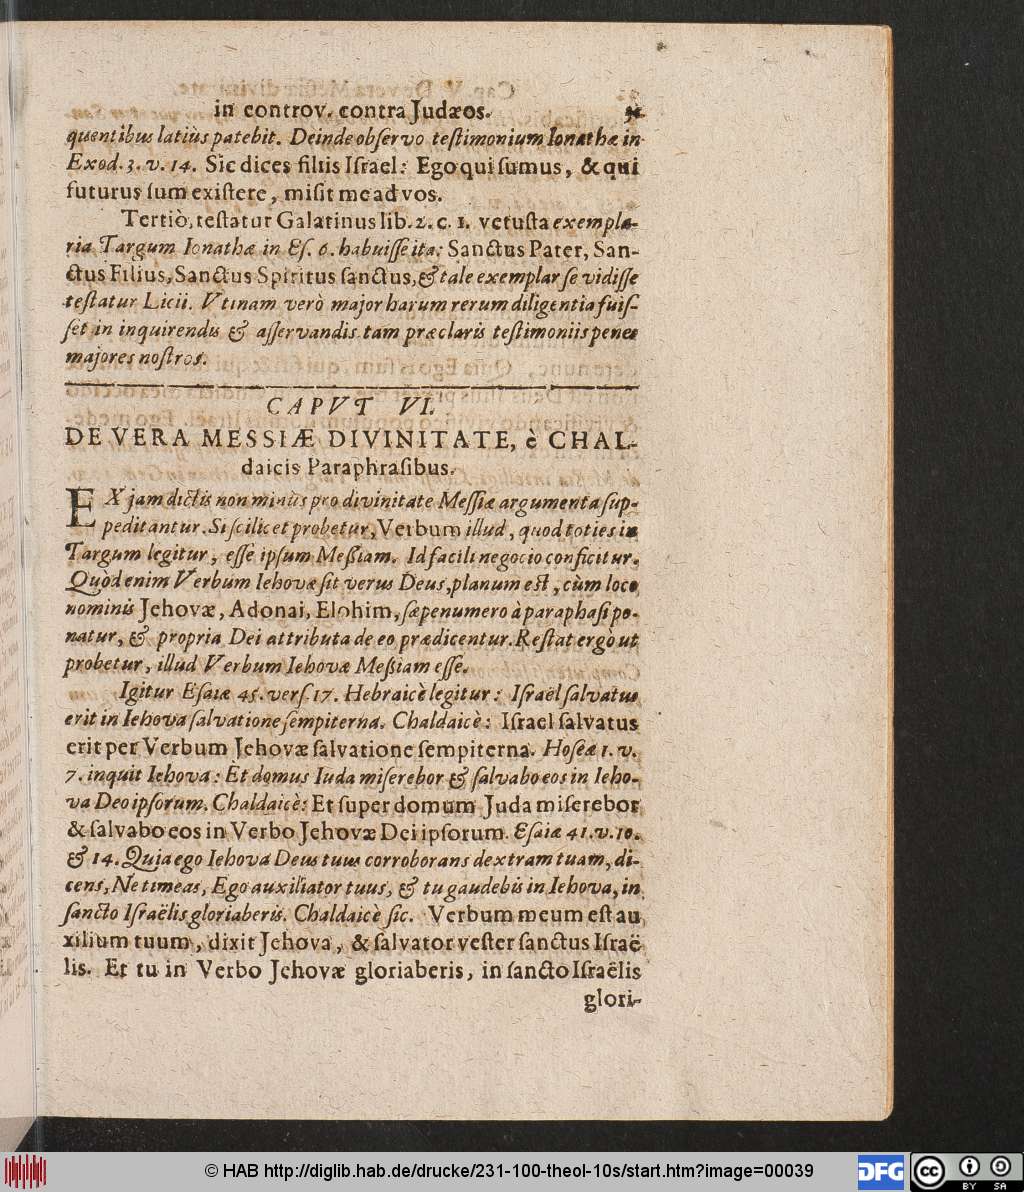 in controv. contra Judæos.
quentibus latiùs patebit. Deinde observo testimonium Ionathæ in
Exod. 3. v. 14. Sic dices filiis Israel: Ego qui sumus, & qui
futurus sum existere, misit me ad vos.
Tertiò, testatur Galatinus lib. 2. c. 1. vetusta exempla-
ria Targum Ionathæ in Es. 6. habuisse ita: Sanctus Pater, San-
ctus Filius, Sanctus Spiritus sanctus, & tale exemplar se vidisse
testatur Licii. Vtinam verò major harum rerum diligentia fuis-
set in inquirendis & asservandis tam præclaris testimoniis penes
majores nostros.
CAPVT VI.
DE VERA MESSIÆ DIVINITATE, è CHAL-
daicis Paraphrasibus.
EX jam dictis non minùs pro divinitate Messiæ argumenta sup-
peditantur. Si scilicet probetur, Verbum illud, quod toties in
Targum legitur, esse ipsum Messiam. Id facili negocio conficitur.
Quòd enim Verbum Iehovæ sit verus Deus, planum est, cùm loco
nominis Jehovæ, Adonai, Elohim, sæpenumero à paraphasi po-
natur, & propria Dei attributa de eo prædicentur. Restat ergò ut
probetur, illud Verbum Iehovæ Messiam esse.
Igitur Esaiæ 45. vers. 17. Hebraicè legitur: Israël salvatus
erit in Iehova salvatione sempiterna. Chaldaicè: Israel salvatus
erit per Verbum Jehovæ salvatione sempiterna. Hoseæ 1. v.
7. inquit Iehova: Et domus Iuda miserebor & salvabo eos in Ieho-
va Deo ipsorum. Chaldaicè: Et super domum Juda miserebor
& salvabo eos in Verbo Jehovæ Dei ipsorum. Esaiæ 41. v. 10.
& 14. Quia ego Iehova Deus tuus corroborans dextram tuam, di-
cens, Ne timeas, Ego auxiliator tuus, & tu gaudebis in Iehova, in
sancto Israëlis gloriaberis. Chaldaicè sic. Verbum meum est au
xilium tuum, dixit Jehova, & salvator vester sanctus Israë
lis. Et tu in Verbo Jehovæ gloriaberis, in sancto Israëlis
glori-
© HAB http://diglib.hab.de/drucke/231-100-theol-10s/start.htm?image=00039
DFG
cc BY SA